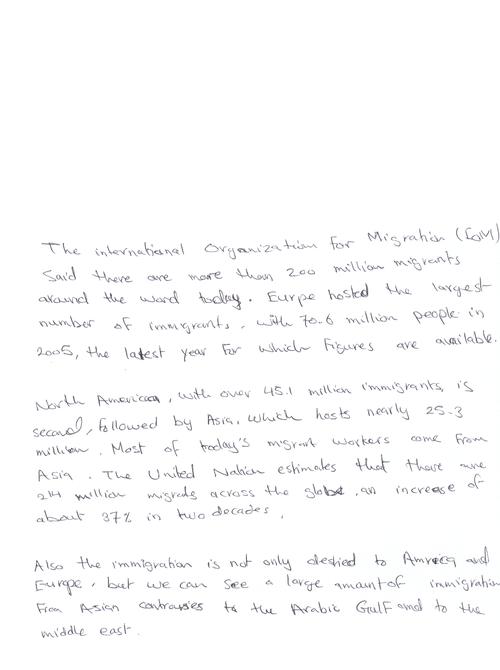 The international Organization for Migration (IOM)
Said there are more than 200 million migrants
around the word today. Eurpe hosted the largest
number of immigrants, with 70.6 million people in
2005, the latest year for which figures are available.
North America, with over 45.1 million immigrants, is
second, followed by Asia, which hosts nearly 25.3
million. Most of today's migrant workers come from
Asia. The United Nation estimates that there are
214 million migrats across the globe, an increase of
about 37% in two decades.
Also the immigration is not only to Amrica and
Europe, but we can see a large amount of immigration
From Asian to the Arabic Gulf and to the
middle east.